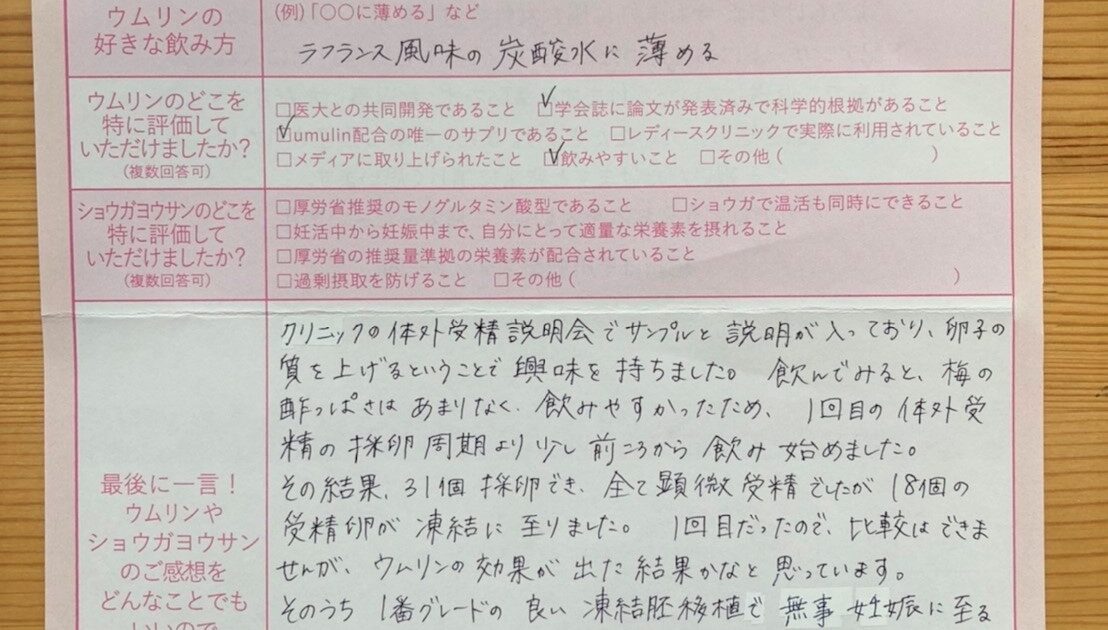 ウムリンの
好きな飲み方
(例)「〇〇に薄める」など
ラフランス風味の炭酸水に薄める
ウムリンのどこを
特に評価して
いただけましたか?
(複数回答可)
□医大との共同開発であること ☑学会誌に論文が発表済みで科学的根拠があること
☑umulin配合の唯一のサプリであること □レディースクリニックで実際に利用されていること
□メディアに取り上げられたこと ☑飲みやすいこと □その他( )
ショウガヨウサンのどこを
特に評価して
いただけましたか?
(複数回答可)
□厚労省推奨のモノグルタミン酸型であること □ショウガで温活も同時にできること
□妊活中から妊娠中まで、自分にとって適量な栄養素を摂れること
□厚労省の推奨量準拠の栄養素が配合されていること
□過剰摂取を防げること □その他( )
最後に一言!
ウムリンや
ショウガヨウサン
のご感想を
どんなことでも
いいので
クリニックの体外受精説明会でサンプルと説明が入っており、卵子の
質を上げるということで興味を持ちました。飲んでみると、梅の
酸っぱさはあまりなく、飲みやすかったため、1回目の体外受
精の採卵周期より少し前ころから飲み始めました。
その結果、31個採卵でき、全て顕微受精でしたが18個の
受精卵が凍結に至りました。1回目だったので、比較はできま
せんが、ウムリンの効果が出た結果かなと思っています。
そのうち1番グレードの良い凍結胚移植で無事妊娠に至る